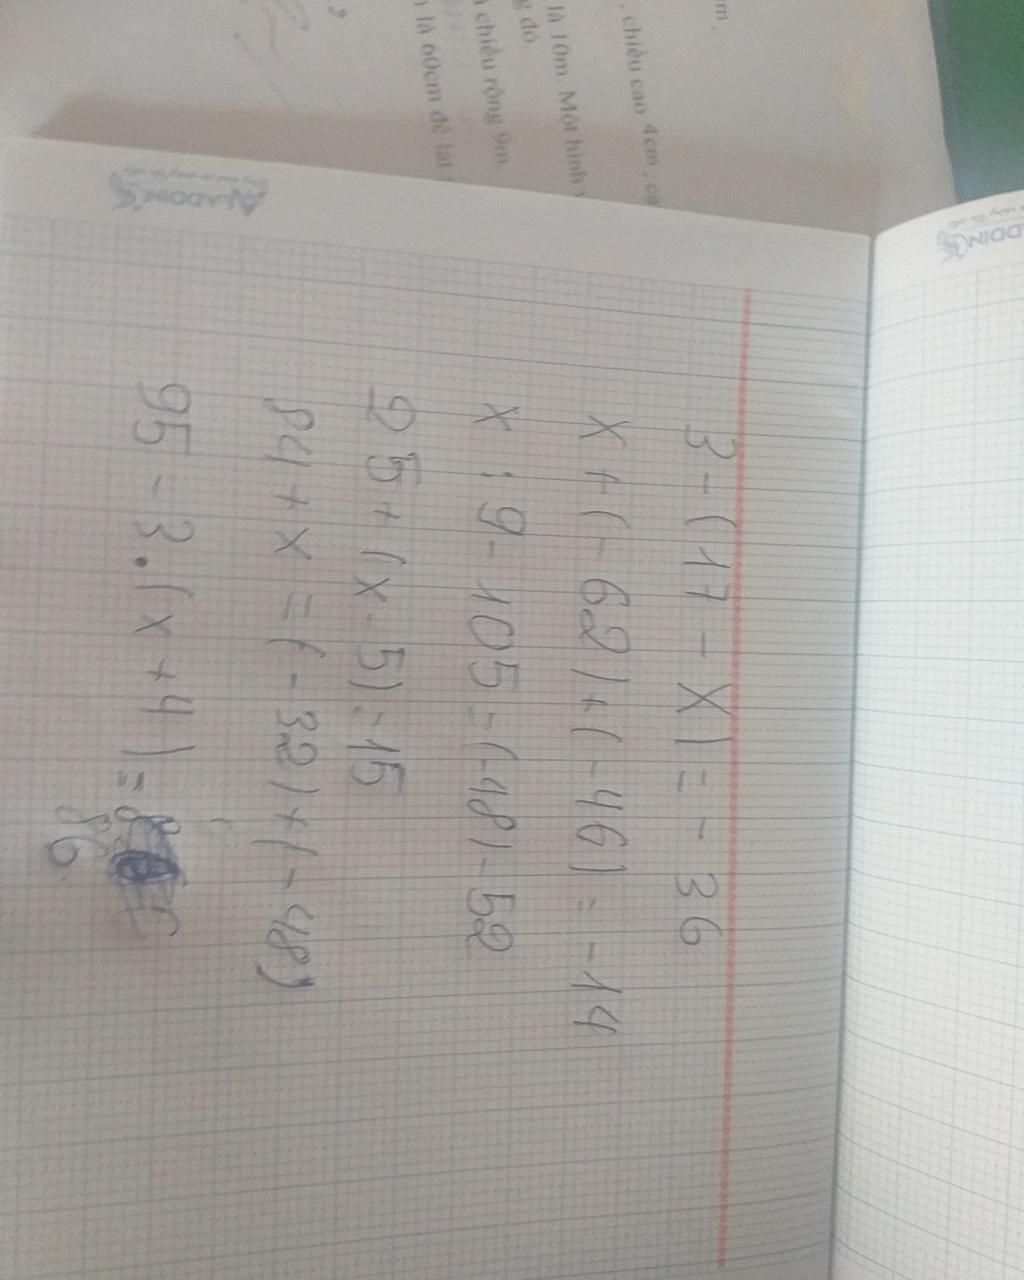 3 - (17 - X) = - 36
X + (- 62) + (- 46) = -14
x : 9 - 105 = (-48) - 52
25 + (x - 5) = 15
84 + x = (- 32) + (- 48)
95 - 3.(x + 4) =
86
ALADDIN
DDIN
m.
, chiều cao 4cm , c
là 10m. Một hình
g đó.
chiều rộng 9m
là 60cm để lát